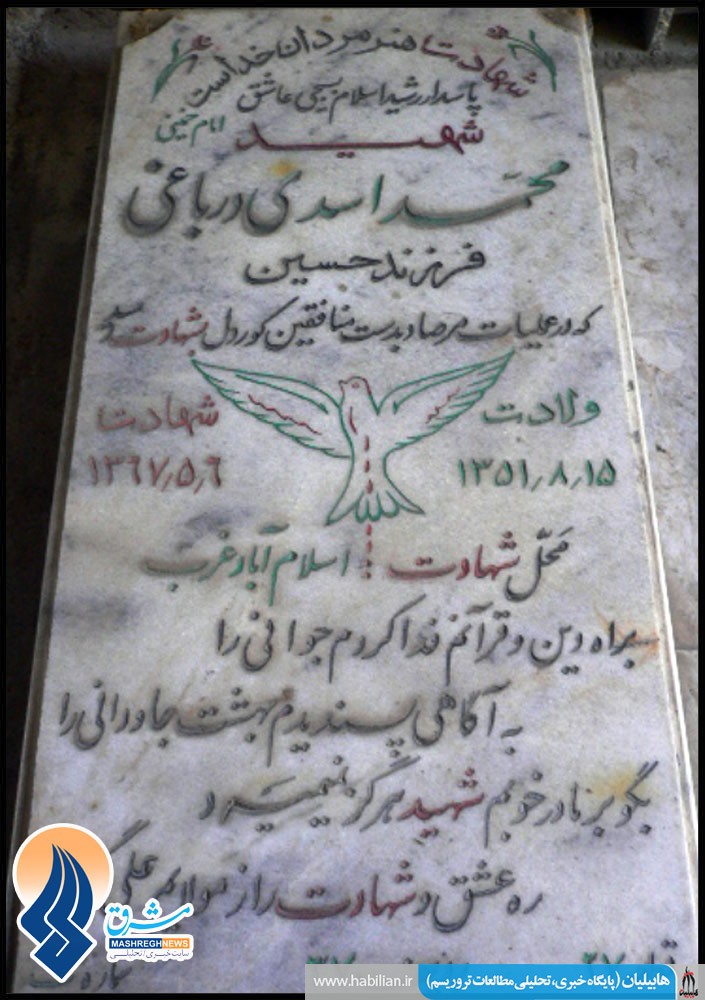 شهادت هنر مردان خداست
پاسدار رشید اسلام بسیجی عاشق
امام خمینی
شهید
محمد اسدی درباغی
فرزند حسین
که در عملیات مرصاد بدست منافقین کوردل بشهادت رسید
ولادت
شهادت
۱۳۵۱٫۸٫۱۵
۱۳۶۷٫۵٫۶
محلّ شهادت : اسلام آباد غرب
براه دین و قرآنم فدا کردم جوانی را
به آگاهی پسندیدم بهشت جاودانی را
بگو بر مادر خوبم شهید هرگز نمیمیرد
ره عشق و شهادت را ز مولایم علی
مشرق
MASHREGHNEWS
سایت خبری/تحلیلی
هابیلیان (پایگاه خبری، تحلیلی مطالعات تروریسم)
www.habilian.ir
هابیلیان